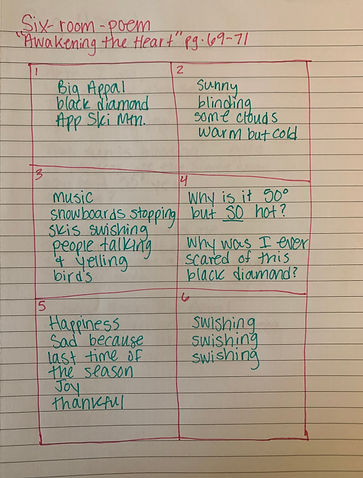 Six-room-poem
"Awakening the Heart" pg. 69-71
1
Big Appal
black diamond
App Ski Mtn.
2
sunny
blinding
some clouds
warm but cold
3
music
snowboards stopping
skis swishing
people talking
& yelling
bird's
4
Why is it 50°
but SO hot?
Why was I ever
scared of this
black diamond?
5
Happiness
Sad because
last time of
the season
Joy
thankful
6
swishing
swishing
swishing